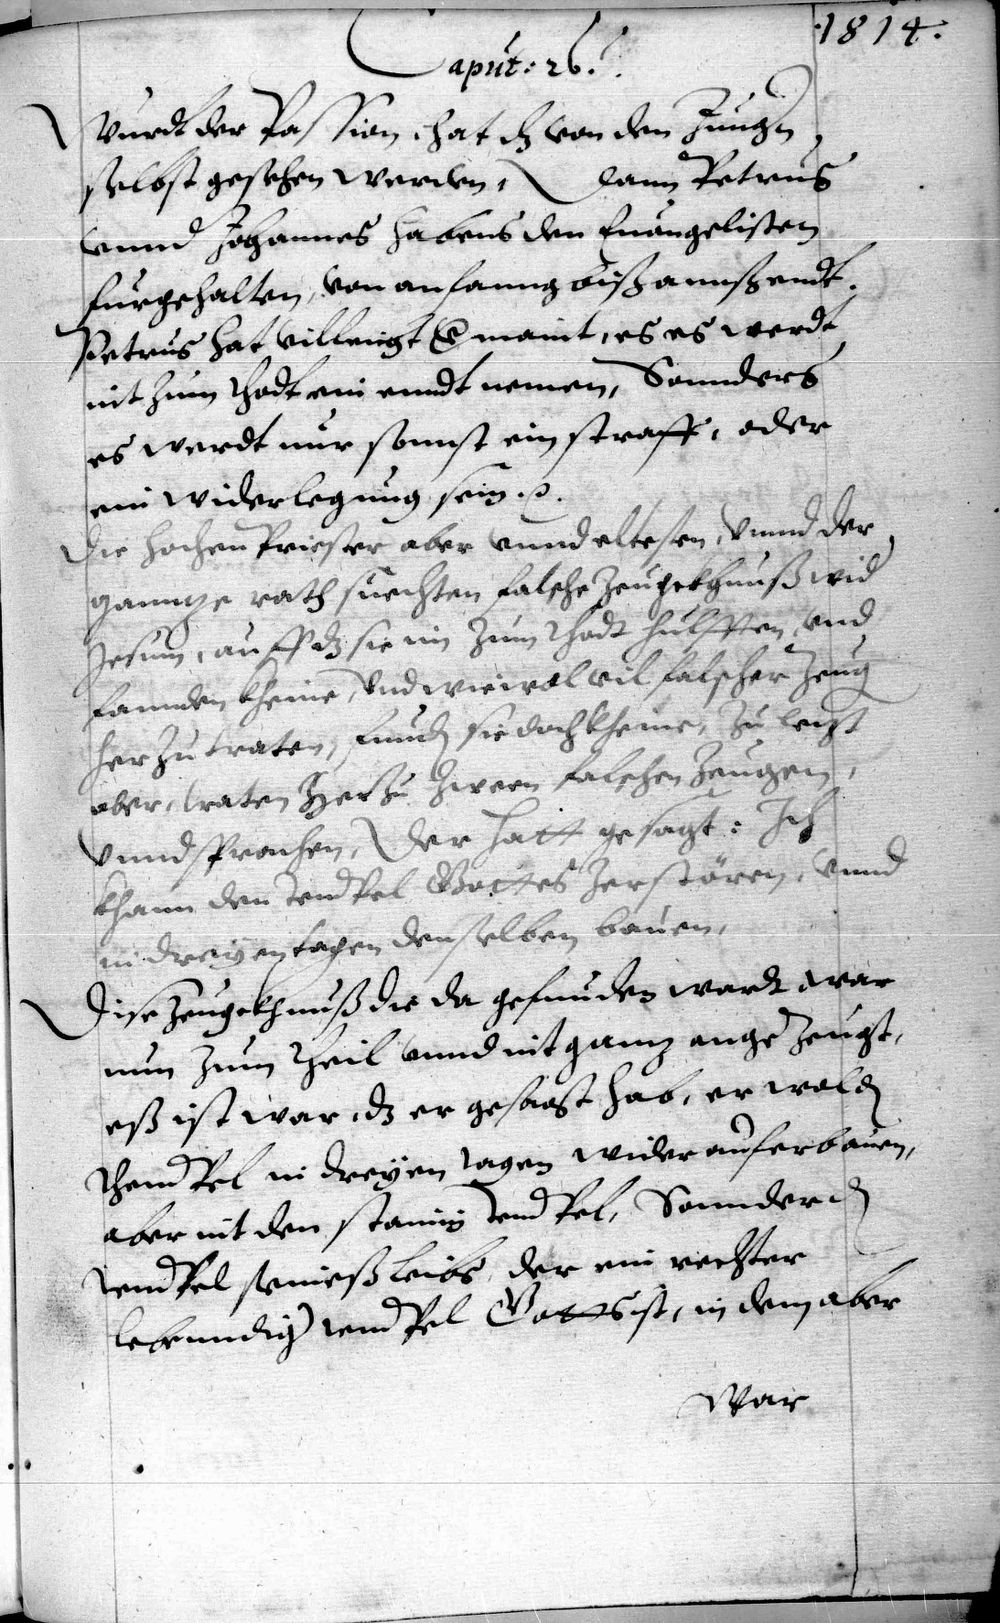 1814.
Caput: 26.
Wurdt der Passion, hat dz von den Jungen
selbst gesehen werden, dann Petrus
vnnd Johannes habens den Euangelisten
furgehalten, von anfanng biß anns endt.
Petrus hat villeicht gemaint, es werdt
nit zum thodt ein enndt nemen, Sonnders
es werdt nur sonnst ein straff, oder
ein widerlegung sein.
Die hochen Priester aber vnnd eltesten, vnnd der
ganntze rath suechten falsche zeugekhnuß wid
Jesum, auff dz sie im zum thodt hulffen, vnd
fannden kheine, vnd wiewol vil falscher zeug
herzu tratten, funden sie doch kheine, zu letzt
aber, tratten herzu zween falschen zeugen,
vnnd sprachen, der hatt gesagt: Ich
khann den Tempel Gottes zerstören, vnnd
in dreyen tagen denselben bauen,
Dise zeugekhnuß die da gefunden wardt war
nun zum theil vnnd nit ganz ange zeugt,
eß ist war, dz er gesagt hab, er wolden
themPel in dreyen tagen wider auferbauen,
aber nit den stainin temPel, Sonnder den
temPel seineß leibs, der ein rechter
lebenndig temPel Gottes ist, in dem aber
war